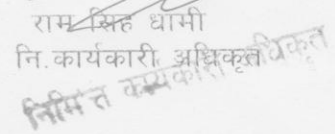 राम सिंह धामी
नि. कार्यकारी अधिकृत
निमित्त कार्यकारी अधिकृत